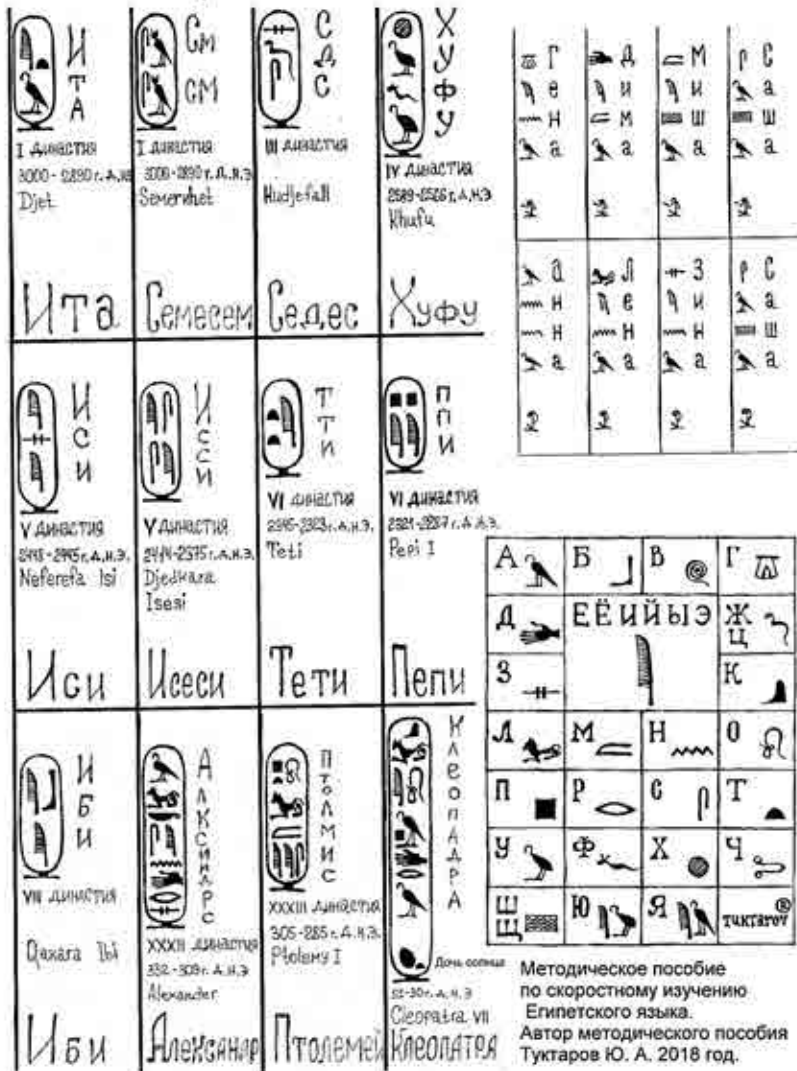 И
Т
А
I династия
3000-2890 г. д.н.э
Djet
Ита
См
см
I династия
3000-2890 г. д.н.э
Semerkhet
Семесем
С
Д
С
III династия
HudjefaII
Седес
Х
У
Ф
У
IV династия
2589-2566 г. д.н.э
Khufu
Хуфу
И
С
И
V династия
Neferefa Isi
Иси
И
С
С
И
V династия
Djedkara
Isesi
Исеси
Т
Т
И
VI династия
2345-2323 г. д.н.э.
Teti
Тети
П
П
И
VI династия
Pepi I
Пепи
И
Б
И
VIII династия
Qakara Ibi
Иби
А
л
К
С
И
Н
Д
Р
С
XXXII династия
332-309 г. д.н.э.
Alexander
Александр
П
т
о
Л
М
И
С
XXXIII династия
305-285 г. д.н.э.
Ptolemy I
Птолемей
К
Л
е
О
П
А
Д
Р
А
Дочь солнца
51-30 г. д.н.э
Cleopatra VII
Клеопатра
Г
е
н
а
Д
и
м
а
М
и
ш
а
С
а
ш
а
а
н
н
а
Л
е
н
а
З
и
н
а
С
а
ш
а
А Б В Г
Д ЕЁИЙЫЭ Ж Ц
З К
Л М Н О
П Р С Т
У Ф Х Ч
Ш Щ Ю Я TUKTAROV ®
Методическое пособие
по скоростному изучению
Египетского языка.
Автор методического пособия
Туктаров Ю. А. 2018 год.